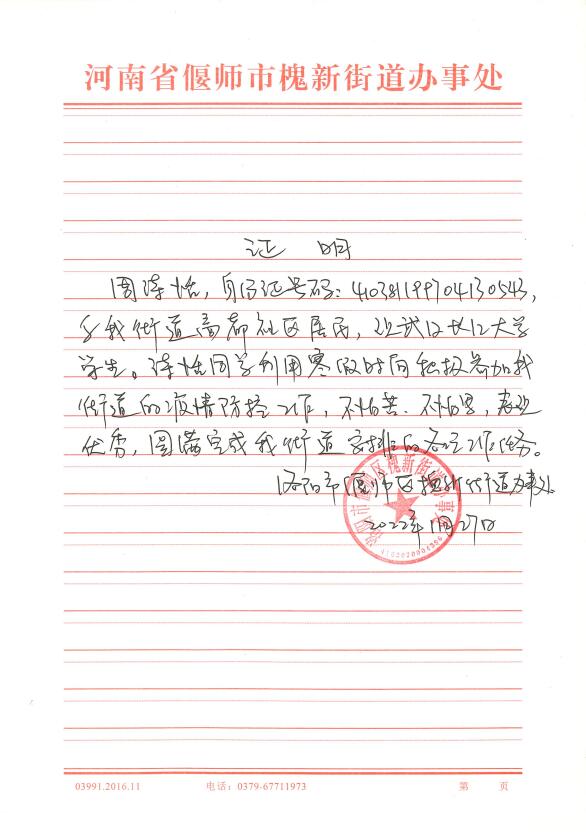 河南省偃师市槐新街道办事处
证 明
周涛恬，身份证号码：410381199704130543，
系我街道高都社区居民，现武汉长江大学
学生。涛恬同学利用寒假时间积极参加我
街道的疫情防控工作，不怕苦、不怕累，表现
优秀，圆满完成我街道安排的各项工作任务。
洛阳市偃师区槐新街道办事处
2022年1月27日
洛阳市偃师区槐新街道办事处
03991.2016.11 电话：0379-67711973 第 页